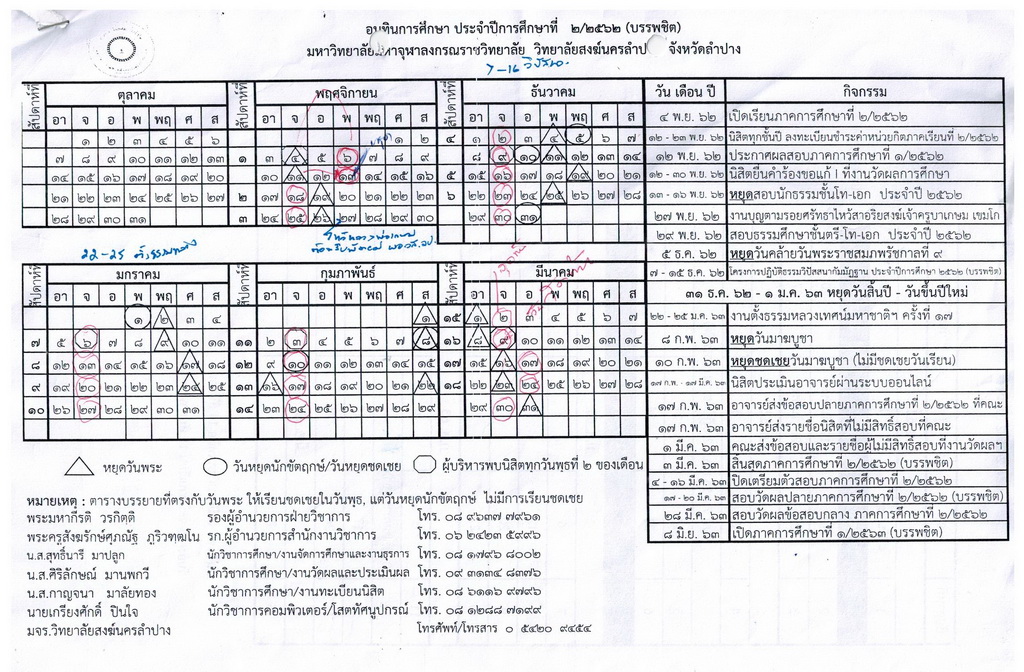 อนุทินการศึกษา ประจำปีการศึกษาที่ ๒/๒๕๖๒ (บรรพชิต)
มหาวิทยาลัยมหาจุฬาลงกรณราชวิทยาลัย วิทยาลัยสงฆ์นครลำปาง จังหวัดลำปาง
สัปดาห์ที่ ตุลาคม สัปดาห์ที่ พฤศจิกายน สัปดาห์ที่ ธันวาคม
อา จ อ พ พฤ ศ ส อา จ อ พ พฤ ศ ส อา จ อ พ พฤ ศ ส
๑ ๒ ๓ ๔ ๕ ๖ ๑ ๒ ๔ ๑ ๒ ๓ ๔ ๕ ๖ ๗
๗ ๘ ๙ ๑๐ ๑๑ ๑๒ ๑๓ ๑ ๓ ๔ ๕ ๖ ๗ ๘ ๙ ๘ ๙ ๑๐ ๑๑ ๑๒ ๑๓ ๑๔
๑๔ ๑๕ ๑๖ ๑๗ ๑๘ ๑๙ ๒๐ ๑๐ ๑๑ ๑๒ ๑๓ ๑๔ ๑๕ ๑๖ ๕ ๑๕ ๑๖ ๑๗ ๑๘ ๑๙ ๒๐ ๒๑
๒๑ ๒๒ ๒๓ ๒๔ ๒๕ ๒๖ ๒๗ ๒ ๑๗ ๑๘ ๑๙ ๒๐ ๒๑ ๒๒ ๒๓ ๖ ๒๒ ๒๓ ๒๔ ๒๕ ๒๖ ๒๗ ๒๘
๒๘ ๒๙ ๓๐ ๓๑ ๓ ๒๔ ๒๕ ๒๖ ๒๗ ๒๘ ๒๙ ๓๐ ๒๙ ๓๐ ๓๑
สัปดาห์ที่ มกราคม สัปดาห์ที่ กุมภาพันธ์ สัปดาห์ที่ มีนาคม
อา จ อ พ พฤ ศ ส อา จ อ พ พฤ ศ ส อา จ อ พ พฤ ศ ส
๑ ๒ ๓ ๔ ๑ ๑๕ ๑ ๒ ๓ ๔ ๕ ๖ ๗
๗ ๕ ๖ ๗ ๘ ๙ ๑๐ ๑๑ ๑๑ ๒ ๓ ๔ ๕ ๖ ๗ ๘ ๑๖ ๘ ๙ ๑๐ ๑๑ ๑๒ ๑๓ ๑๔
๘ ๑๒ ๑๓ ๑๔ ๑๕ ๑๖ ๑๗ ๑๘ ๑๒ ๙ ๑๐ ๑๑ ๑๒ ๑๓ ๑๔ ๑๕ ๑๗ ๑๕ ๑๖ ๑๗ ๑๘ ๑๙ ๒๐ ๒๑
๙ ๑๙ ๒๐ ๒๑ ๒๒ ๒๓ ๒๔ ๒๕ ๑๓ ๑๖ ๑๗ ๑๘ ๑๙ ๒๐ ๒๑ ๒๒ ๑๘ ๒๒ ๒๓ ๒๔ ๒๕ ๒๖ ๒๗ ๒๘
๑๐ ๒๖ ๒๗ ๒๘ ๒๙ ๓๐ ๓๑ ๑๔ ๒๓ ๒๔ ๒๕ ๒๖ ๒๗ ๒๘ ๒๙ ๒๙ ๓๐ ๓๑
วัน เดือน ปี กิจกรรม
๔ พ.ย. ๖๒ เปิดเรียนภาคการศึกษาที่ ๒/๒๕๖๒
๑๒ - ๒๓ พ.ย. ๖๒ นิสิตทุกชั้นปี ลงทะเบียนชำระค่าหน่วยกิตภาคเรียนที่ ๒/๒๕๖๒
๑๒ พ.ย. ๖๒ ประกาศผลสอบภาคการศึกษาที่ ๑/๒๕๖๒
๑๒ - ๓๐ พ.ย. ๖๒ นิสิตยื่นคำร้องขอแก้ I ที่งานวัดผลการศึกษา
๑๓ - ๑๖ พ.ย. ๖๒ หยุดสอบนักธรรมชั้นโท-เอก ประจำปี ๒๕๖๒
๒๗ พ.ย. ๖๒ งานบุญตามรอยศรัทธาไหว้สาอริยสงฆ์เจ้าครูบาเกษม เขมโก
๒๙ พ.ย. ๖๒ สอบธรรมศึกษาชั้นตรี-โท-เอก ประจำปี ๒๕๖๒
๕ ธ.ค. ๖๒ หยุดวันคล้ายวันพระราชสมภพรัชกาลที่ ๙
๗ - ๑๕ ธ.ค. ๖๒ โครงการปฏิบัติธรรมวิปัสสนากัมมัฏฐาน ประจำปีการศึกษา ๒๕๖๒ (บรรพชิต)
๓๑ ธ.ค. ๖๒ - ๑ ม.ค. ๖๓ หยุดวันสิ้นปี - วันขึ้นปีใหม่
๒๒ - ๒๕ ม.ค. ๖๓ งานตั้งธรรมหลวงเทศน์มหาชาติฯ ครั้งที่ ๑๗
๘ ก.พ. ๖๓ หยุดวันมาฆบูชา
๑๐ ก.พ. ๖๓ หยุดชดเชยวันมาฆบูชา (ไม่มีชดเชยวันเรียน)
๑๗ ก.พ. - ๑๗ มี.ค. ๖๓ นิสิตประเมินอาจารย์ผ่านระบบออนไลน์
๑๗ ก.พ. ๖๓ อาจารย์ส่งข้อสอบปลายภาคการศึกษาที่ ๒/๒๕๖๒ ที่คณะ
๑๗ ก.พ. ๖๓ อาจารย์ส่งรายชื่อนิสิตที่ไม่มีสิทธิ์สอบที่คณะ
๑ มี.ค. ๖๓ คณะส่งข้อสอบและรายชื่อผู้ไม่มีสิทธิ์สอบที่งานวัดผลฯ
๓ มี.ค. ๖๓ สิ้นสุดภาคการศึกษาที่ ๒/๒๕๖๒ (บรรพชิต)
๔ - ๑๖ มี.ค. ๖๓ ปิดเตรียมตัวสอบภาคการศึกษาที่ ๒/๒๕๖๒
๑๗ - ๒๐ มี.ค. ๖๓ สอบวัดผลปลายภาคการศึกษาที่ ๒/๒๕๖๒ (บรรพชิต)
๒๘ มี.ค. ๖๓ สอบวัดผลข้อสอบกลาง ภาคการศึกษาที่ ๒/๒๕๖๒
๘ มิ.ย. ๖๓ เปิดภาคการศึกษาที่ ๑/๒๕๖๓ (บรรพชิต)
22-25 ตั้งธรรมหลวง
หยุดวันพระ วันหยุดนักขัตฤกษ์/วันหยุดชดเชย ผู้บริหารพบนิสิตทุกวันพุธที่ ๒ ของเดือน
หมายเหตุ : ตารางบรรยายที่ตรงกับวันพระ ให้เรียนชดเชยในวันพุธ, แต่วันหยุดนักขัตฤกษ์ ไม่มีการเรียนชดเชย
พระมหากีรติ วรกิตติ รองผู้อำนวยการฝ่ายวิชาการ โทร. ๐๘ ๙๖๓๗ ๗๙๖๑
พระครูสังฆรักษ์ศุภณัฐ ภูริวฑฺฒโน รก.ผู้อำนวยการสำนักงานวิชาการ โทร. ๐๖ ๒๔๒๓ ๕๙๙๖
น.ส.สุทธินารี มาปลูก นักวิชาการศึกษา/งานจัดการศึกษาและงานธุรการ โทร. ๐๘ ๑๗๙๖ ๘๐๐๒
น.ส.ศิริลักษณ์ มานพกวี นักวิชาการศึกษา/งานวัดผลและประเมินผล โทร. ๐๙ ๓๑๓๔ ๘๓๗๖
น.ส.กาญจนา มาลัยทอง นักวิชาการศึกษา/งานทะเบียนนิสิต โทร. ๐๘ ๖๑๑๖ ๙๗๙๖
นายเกรียงศักดิ์ ปินใจ นักวิชาการคอมพิวเตอร์/โสตทัศนูปกรณ์ โทร. ๐๘ ๑๒๘๘ ๗๑๙๙
มจร.วิทยาลัยสงฆ์นครลำปาง โทรศัพท์/โทรสาร ๐ ๕๔๒๐ ๙๔๕๔